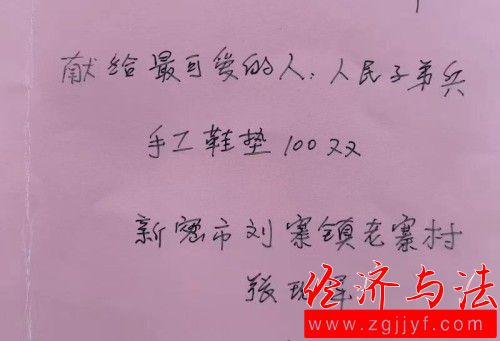 献给最可爱的人：人民子弟兵
手工鞋垫100双
新密市刘寨镇老寨村
张
经济与法
www.zgjjyf.com